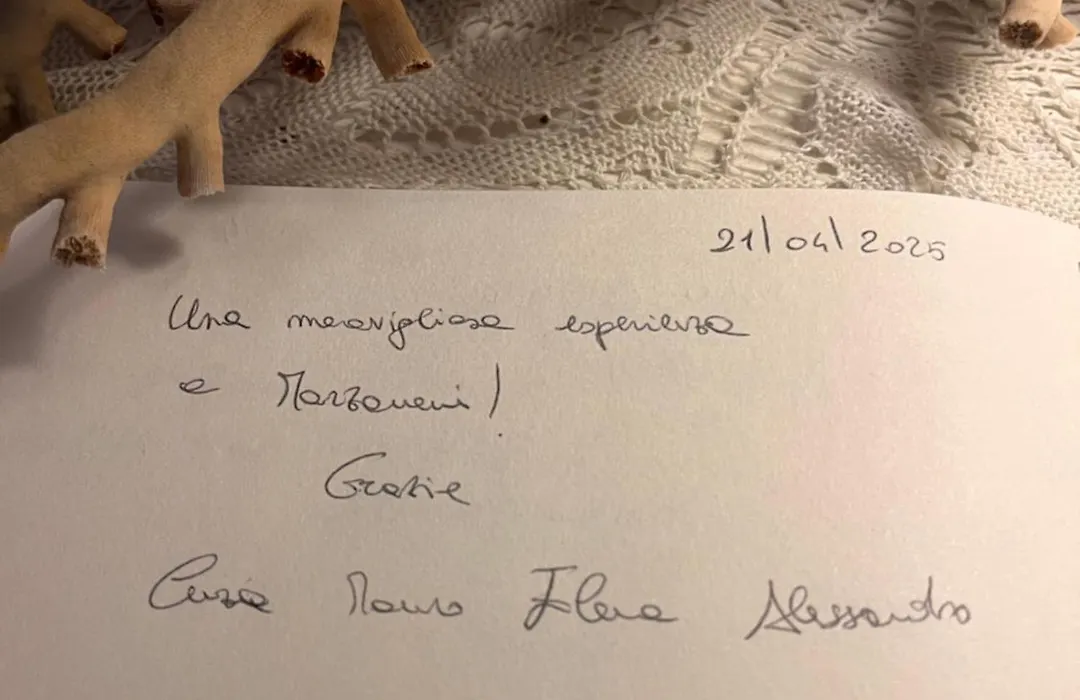 21/04/2025
Una meravigliosa esperienza
a Marzamemi!
Grazie
Mauro Ilena Alessandro